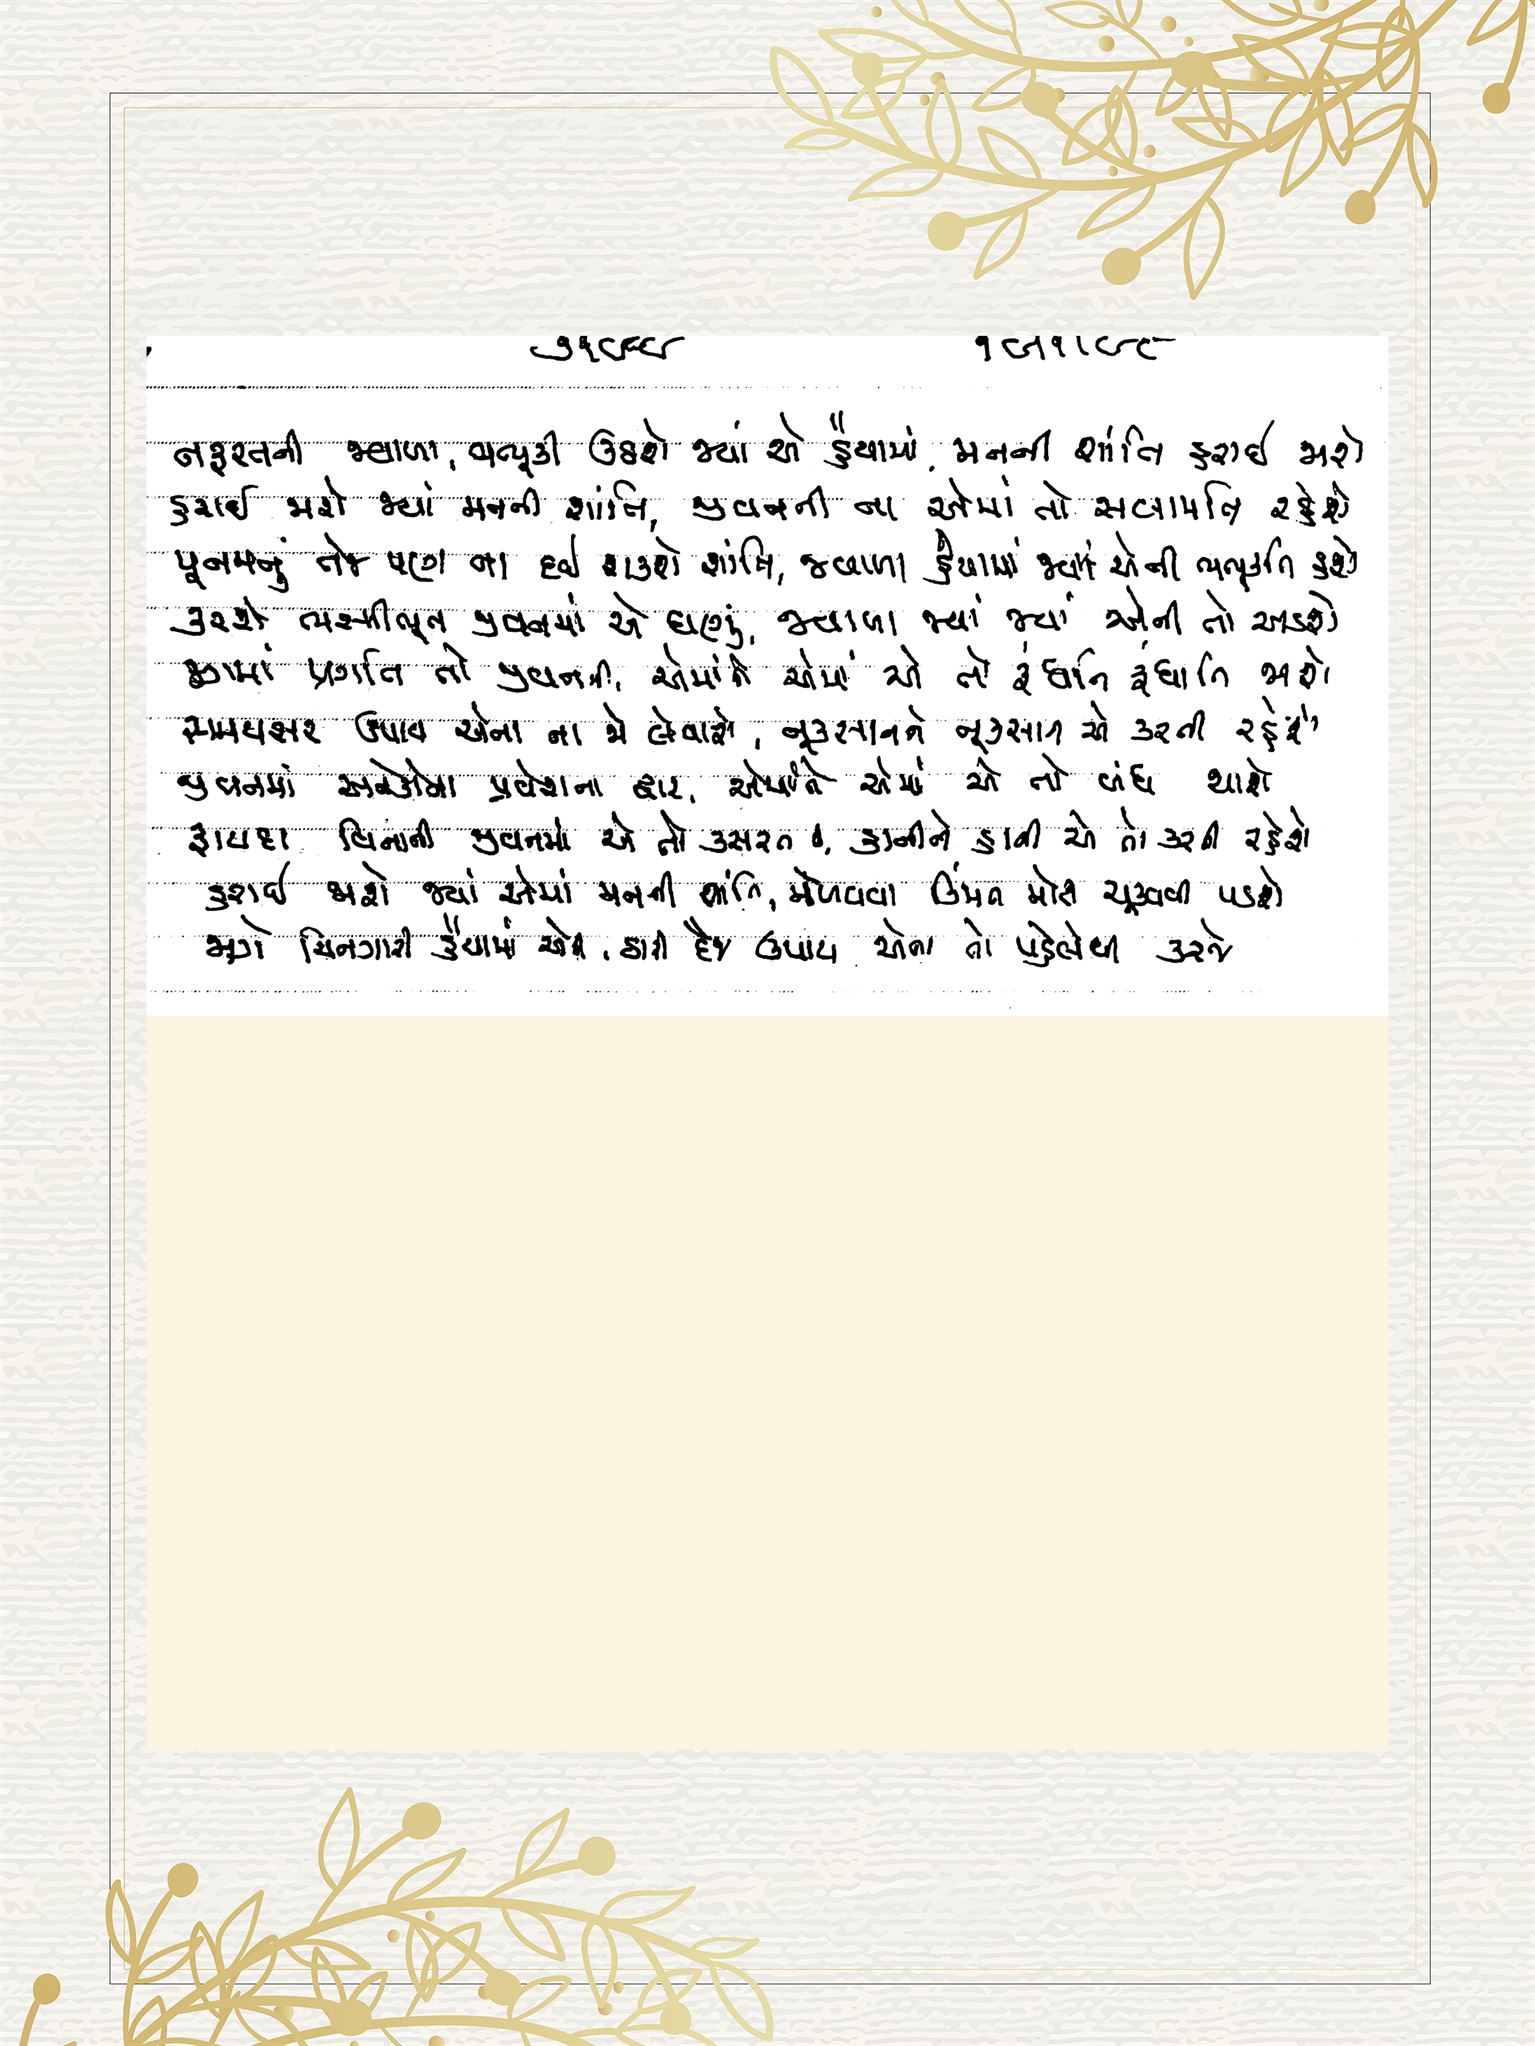 નફરતની જ્વાળા, ભભૂકી ઉઠશે જ્યાં એ હૈયામાં, મનની શાંતિ હરાઈ જાશે
હરાઈ જાશે જ્યાં મનની શાંતિ, જીવનની ના એમાં તો સલામતિ રહેશે
પૂનમનું તેજ પણ ના દઈ શકશે શાંતિ, જ્વાળા હૈયામાં જ્યાં એની ભભૂકતિ હશે
કરશે ભસ્મીભૂત જીવનમાં એ ઘણું, જ્વાળા જ્યાં જ્યાં એની તો અડશે
પ્રગતિ તો જીવનની, એમાંને એમાં એ તો રૂંધાતિ રૂંધાતિ જાશે
સમયસર ઉપાય એના ના જો લેવાશે, નૂકસાનને નૂકસાન એ કરતી રહેશે
જીવનમાં અનેકોના પ્રવેશના દ્વાર, એમાંને એમાં એ તો બંધ થાશે
ફાયદા વિનાની જીવનમાં એ તો કસરત છે, હાનીને હાની એ તો કરતી રહેશે
હરાઈ જાશે જ્યાં એમાં મનની શાંતિ, મેળવવા કિંમત મોટી ચૂકવવી પડશે
જાગે ચિનગારી હૈયામાં એની, ઠારી દેજે ઉપાય એના તો પહેલેથી કરજે